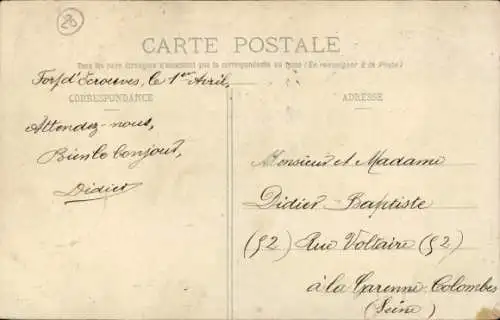 20
CARTE POSTALE
Tous les pays étrangers n'acceptent pas la correspondance au recto (Se renseigner à la Poste)
Fort d'Ecrouves, le 1er Avril,
CORRESPONDANCE
ADRESSE
Attendez-nous,
Bien le bonjour,
Didier
Monsieur et Madame
Didier-Baptiste
(52) Rue Voltaire (52)
à la Garenne-Colombes
(Seine)